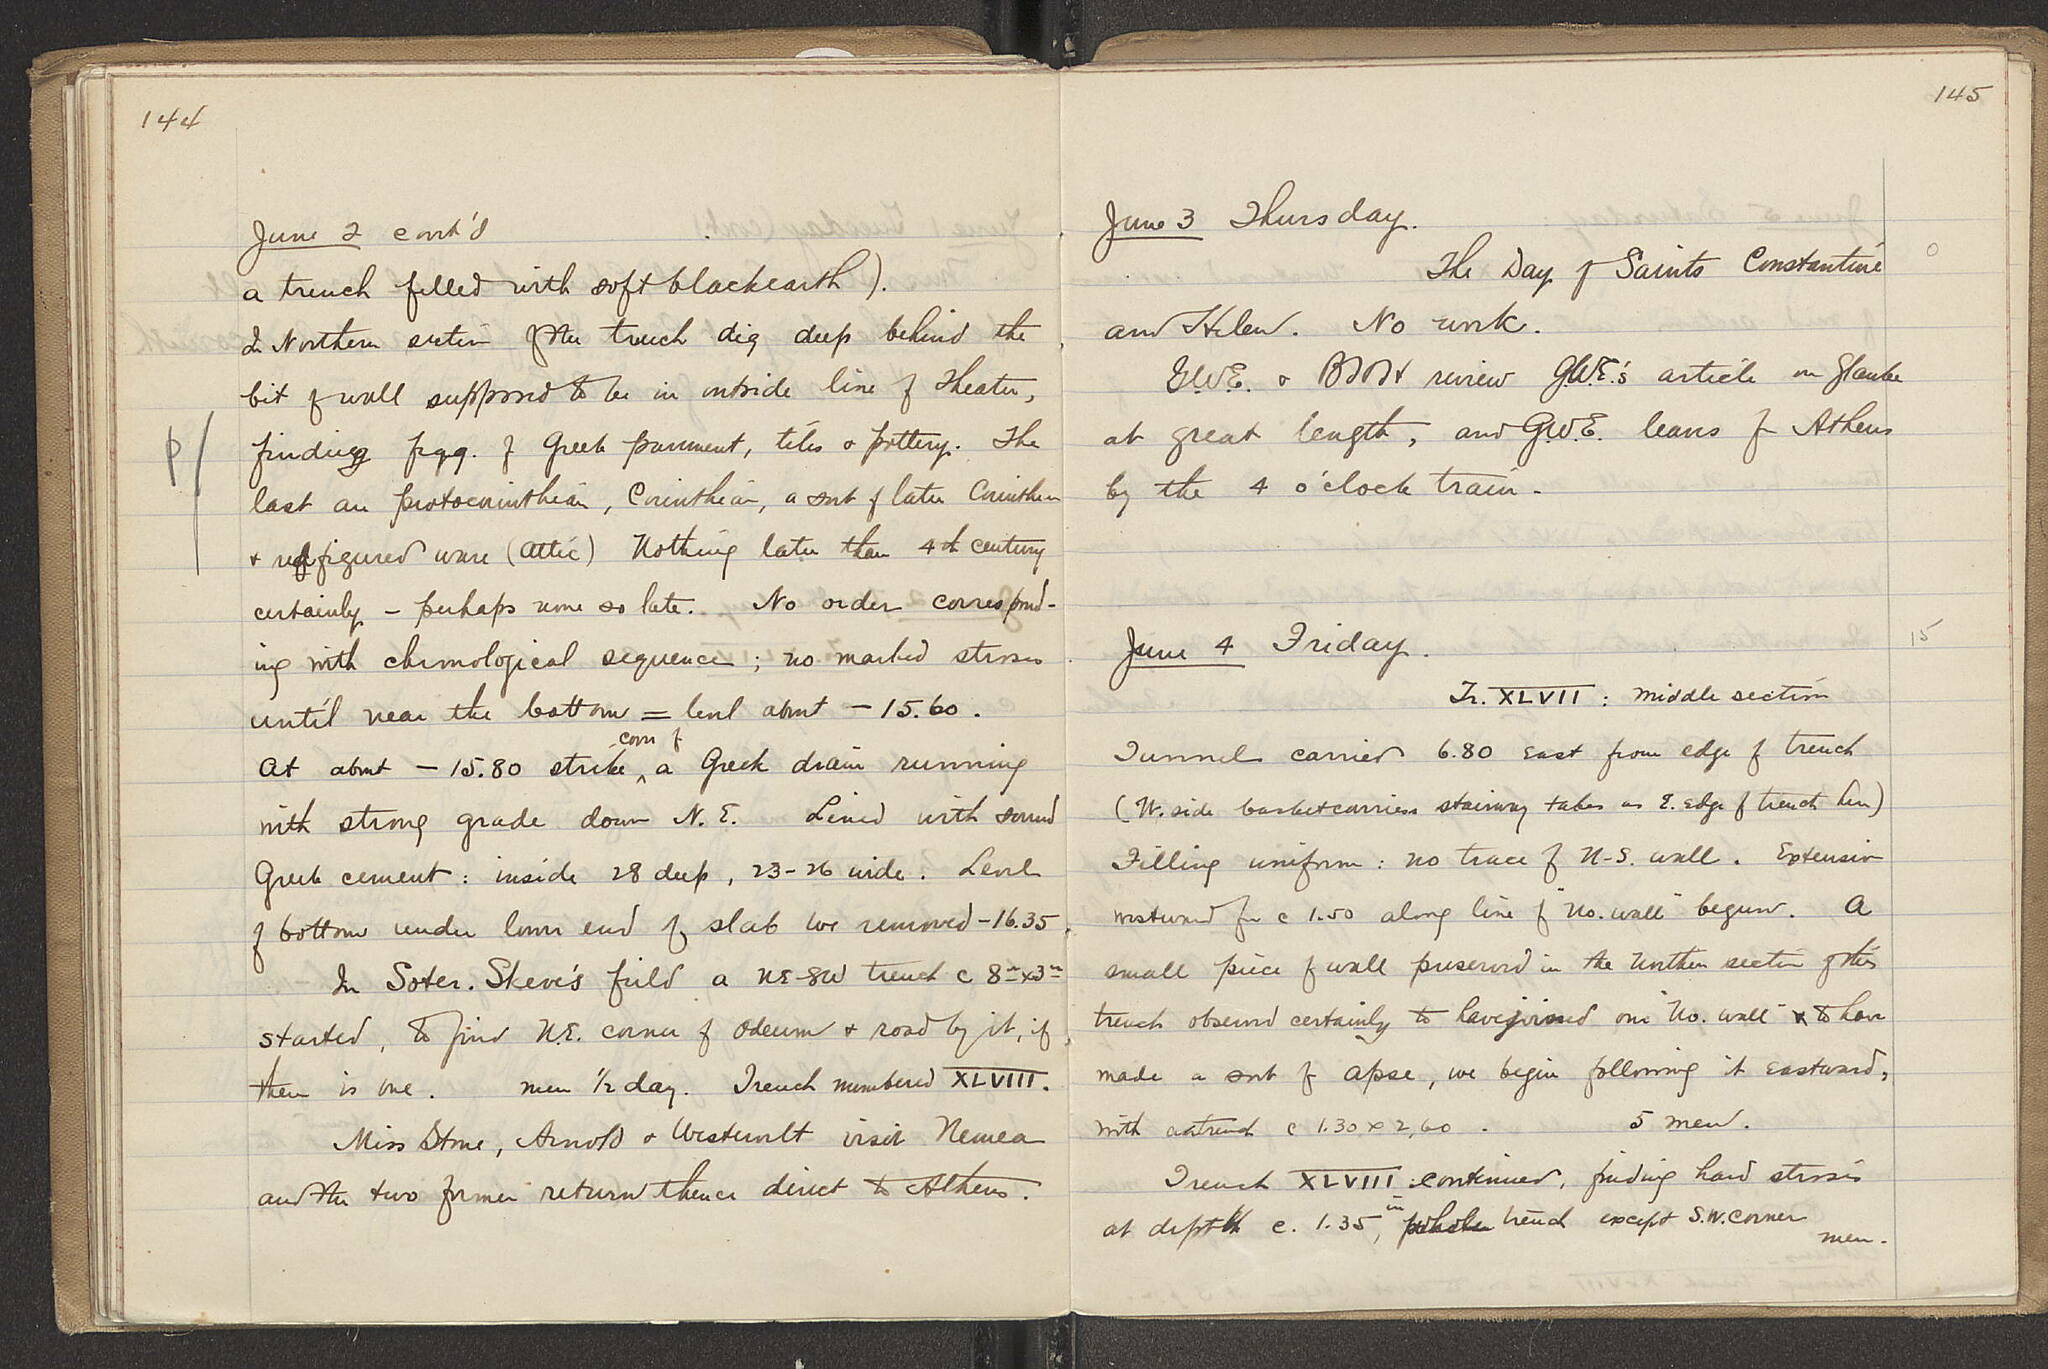 144
June 2 cont'd
a trench filled with soft black earth).
In Northern section of the trench dig deep behind the
bit of wall supposed to be in outside line of Theater,
P/
finding frgg. of Greek pavement, tiles & pottery. The
last are protocorinthian, Corinthian, a sort of later Corinthian
& redfigured ware (Attic) Nothing later than 4th century
certainly - perhaps none so late. No order correspond-
ing with chronological sequence; no marked strosis
until near the bottom = level about - 15.60.
At about - 15.80 strike ^ cover of a Greek drain running
with strong grade down N.E. Lined with sound
Greek cement: inside 28 deep, 23-26 wide. Level
of bottom under lower end of slab we removed - 16.35.
In Soter. Skeve's field a NE-SW trench c 8m x 3m
started, to find N.E. corner of Odeum & road by it, if
there is one. men 1/2 day. Trench numbered XLVIII.
Miss Stone, Arnold & Westervelt visit Nemea
and the two former return thence direct to Athens.
145
June 3 Thursday.
The Day of Saints Constantine
0
and Helen. No work.
G.W.E. & review G.W.E.'s article on Glauke
at great length, and G.W.E. leaves for Athens
by the 4 o'clock train.
June 4 Friday.
15
Tr. XLVII: middle section
Tunnel carried 6.80 east from edge of trench
(W. side basketcarriers stairway taken as E. edge of trench here)
Filling uniform: no trace of N-S. wall. Extension
westward for c 1.50 along line of "No. wall" begun. A
small piece of wall preserved in the Northern section of this
trench observed certainly to have joined our "No. wall" & to have
made a sort of apse, we begin following it eastward,
with a trench c 1.30 x 2.60. 5 men.
Trench XLVIII continued, finding hard strosis
at depth c. 1.35, in whole trench except S.W. corner
men.